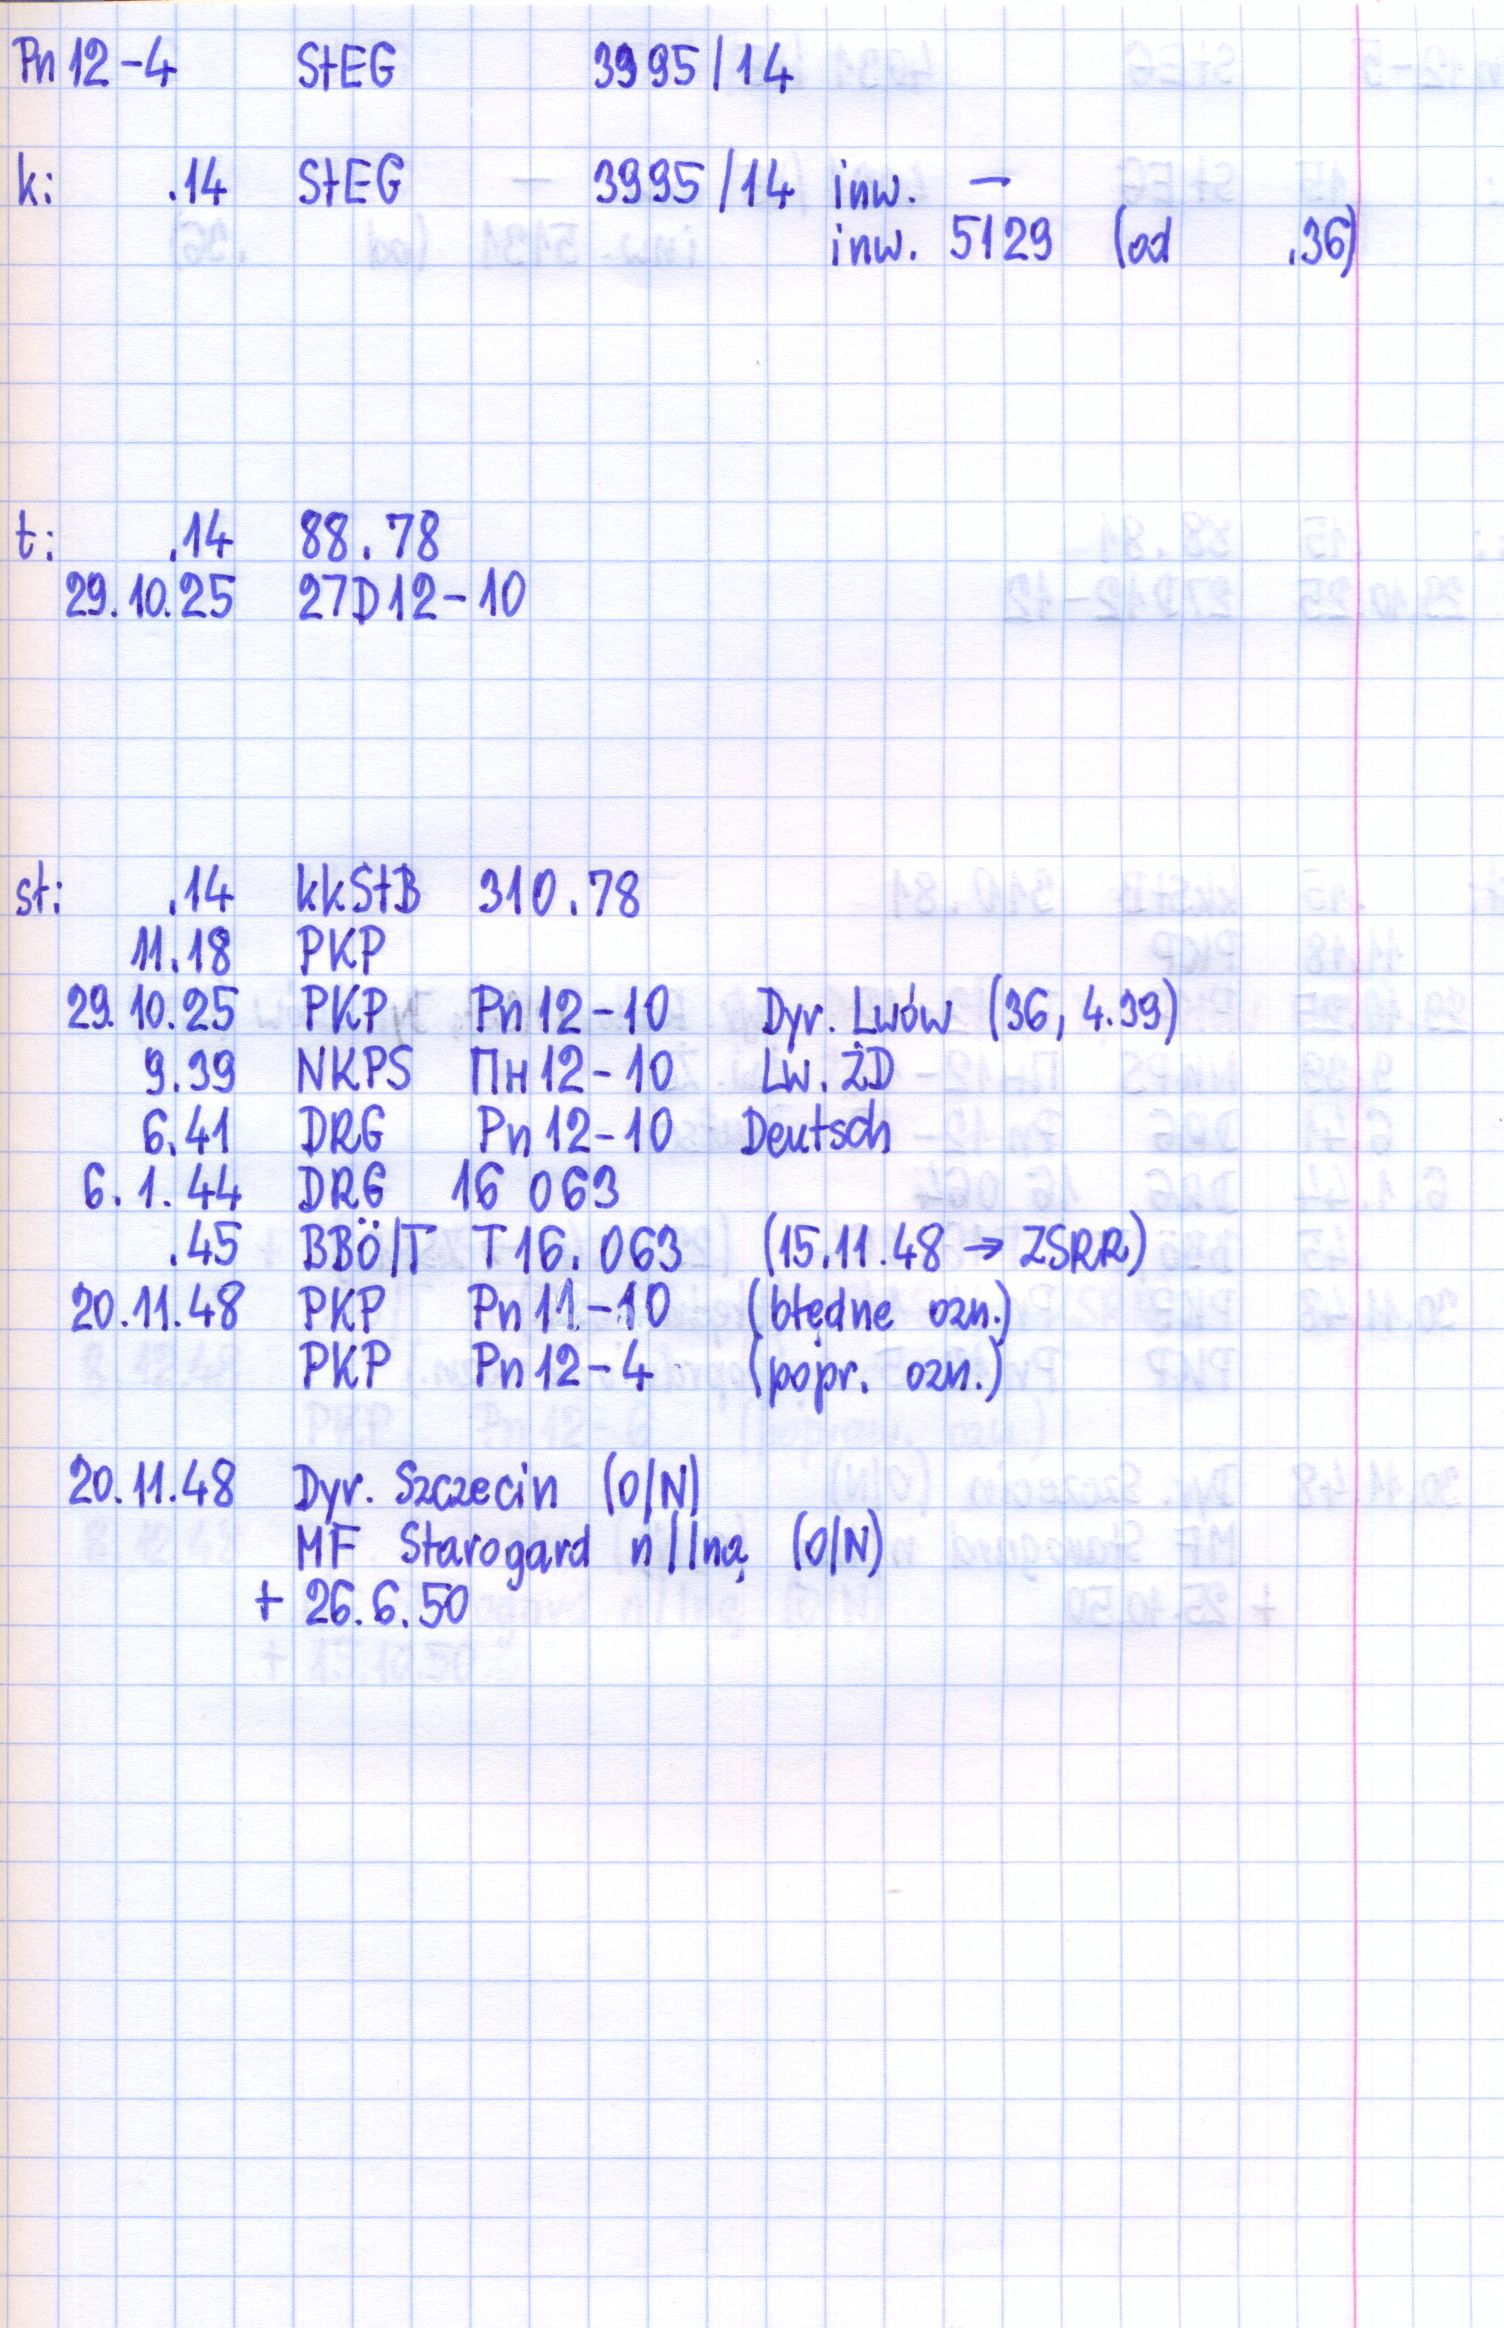 Pn 12-4 StEG 3995/14
k: .14 StEG 3995/14 inw. –
inw. 5129 (od .36)
t: .14 88.78
29.10.25 27D12-10
st: .14 kkStB 310.78
11.18 PKP
29.10.25 PKP Pn 12-10 Dyr. Lwów (36, 4.39)
9.39 NKPS Пн 12-10 Lw. ŻD
6.41 DRG Pn 12-10 Deutsch
6.1.44 DRG 16 063
.45 BBÖ/T T16.063 (15.11.48 → ZSRR)
20.11.48 PKP Pn 11-10 (błędne ozn.)
PKP Pn 12-4 (popr. ozn.)
20.11.48 Dyr. Szczecin (O/N)
MF Starogard n/Iną (O/N)
+ 26.6.50